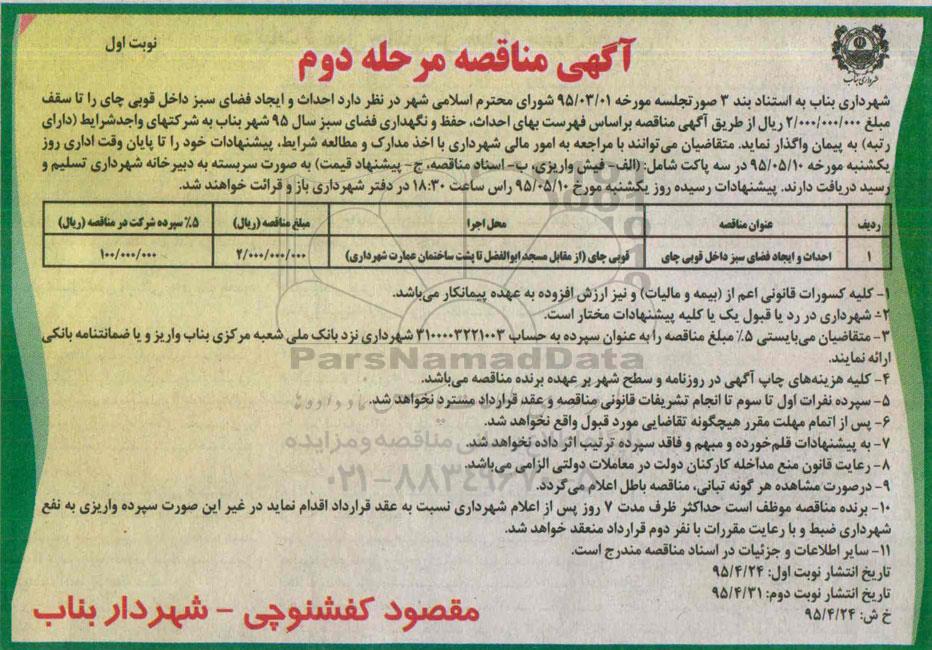 نوبت اول
آگهی مناقصه مرحله دوم
شهرداری بناب
شهرداری بناب به استناد بند ۳ صورتجلسه مورخه ۹۵/۰۳/۰۱ شورای محترم اسلامی شهر در نظر دارد احداث و ایجاد فضای سبز داخل قوبی چای را تا سقف
مبلغ ۲/۰۰۰/۰۰۰/۰۰۰ ریال از طریق آگهی مناقصه براساس فهرست بهای احداث، حفظ و نگهداری فضای سبز سال ۹۵ شهر بناب به شرکتهای واجدشرایط (دارای
رتبه) به پیمان واگذار نماید. متقاضیان می‌توانند با مراجعه به امور مالی شهرداری با اخذ مدارک و مطالعه شرایط، پیشنهادات خود را تا پایان وقت اداری روز
یکشنبه مورخه ۹۵/۰۵/۱۰ در سه پاکت شامل: (الف- فیش واریزی، ب- اسناد مناقصه، ج- پیشنهاد قیمت) به صورت سربسته به دبیرخانه شهرداری تسلیم و
رسید دریافت دارند. پیشنهادات رسیده روز یکشنبه مورخ ۹۵/۰۵/۱۰ راس ساعت ۱۸:۳۰ در دفتر شهرداری باز و قرائت خواهند شد.
ردیف عنوان مناقصه محل اجرا مبلغ مناقصه (ریال) ۵٪ سپرده شرکت در مناقصه (ریال)
۱ احداث و ایجاد فضای سبز داخل قوبی چای قوبی چای (از مقابل مسجد ابوالفضل تا پشت ساختمان عمارت شهرداری) ۲/۰۰۰/۰۰۰/۰۰۰ ۱۰۰/۰۰۰/۰۰۰
۱- کلیه کسورات قانونی اعم از (بیمه و مالیات) و نیز ارزش افزوده به عهده پیمانکار می‌باشد.
۲- شهرداری در رد یا قبول یک یا کلیه پیشنهادات مختار است.
۳- متقاضیان می‌بایستی ۵٪ مبلغ مناقصه را به عنوان سپرده به حساب ۳۱۰۰۰۰۳۲۲۱۰۰۳ شهرداری نزد بانک ملی شعبه مرکزی بناب واریز و یا ضمانتنامه بانکی
ارائه نمایند.
ParsNamadData
۴- کلیه هزینه‌های چاپ آگهی در روزنامه و سطح شهر بر عهده برنده مناقصه می‌باشد.
۵- سپرده نفرات اول تا سوم تا انجام تشریفات قانونی مناقصه و عقد قرارداد مسترد نخواهد شد.
۶- پس از اتمام مهلت مقرر هیچگونه تقاضایی مورد قبول واقع نخواهد شد.
۷- به پیشنهادات قلم‌خورده و مبهم و فاقد سپرده ترتیب اثر داده نخواهد شد.
۸- رعایت قانون منع مداخله کارکنان دولت در معاملات دولتی الزامی می‌باشد.
۹- درصورت مشاهده هر گونه تبانی، مناقصه باطل اعلام می‌گردد.
۱۰- برنده مناقصه موظف است حداکثر ظرف مدت ۷ روز پس از اعلام شهرداری نسبت به عقد قرارداد اقدام نماید در غیر این صورت سپرده واریزی به نفع
شهرداری ضبط و با رعایت مقررات با نفر دوم قرارداد منعقد خواهد شد.
۱۱- سایر اطلاعات و جزئیات در اسناد مناقصه مندرج است.
تاریخ انتشار نوبت اول: ۹۵/۴/۲۴
تاریخ انتشار نوبت دوم: ۹۵/۴/۳۱
خ ش: ۹۵/۴/۲۴
مقصود کفشنوچی - شهردار بناب